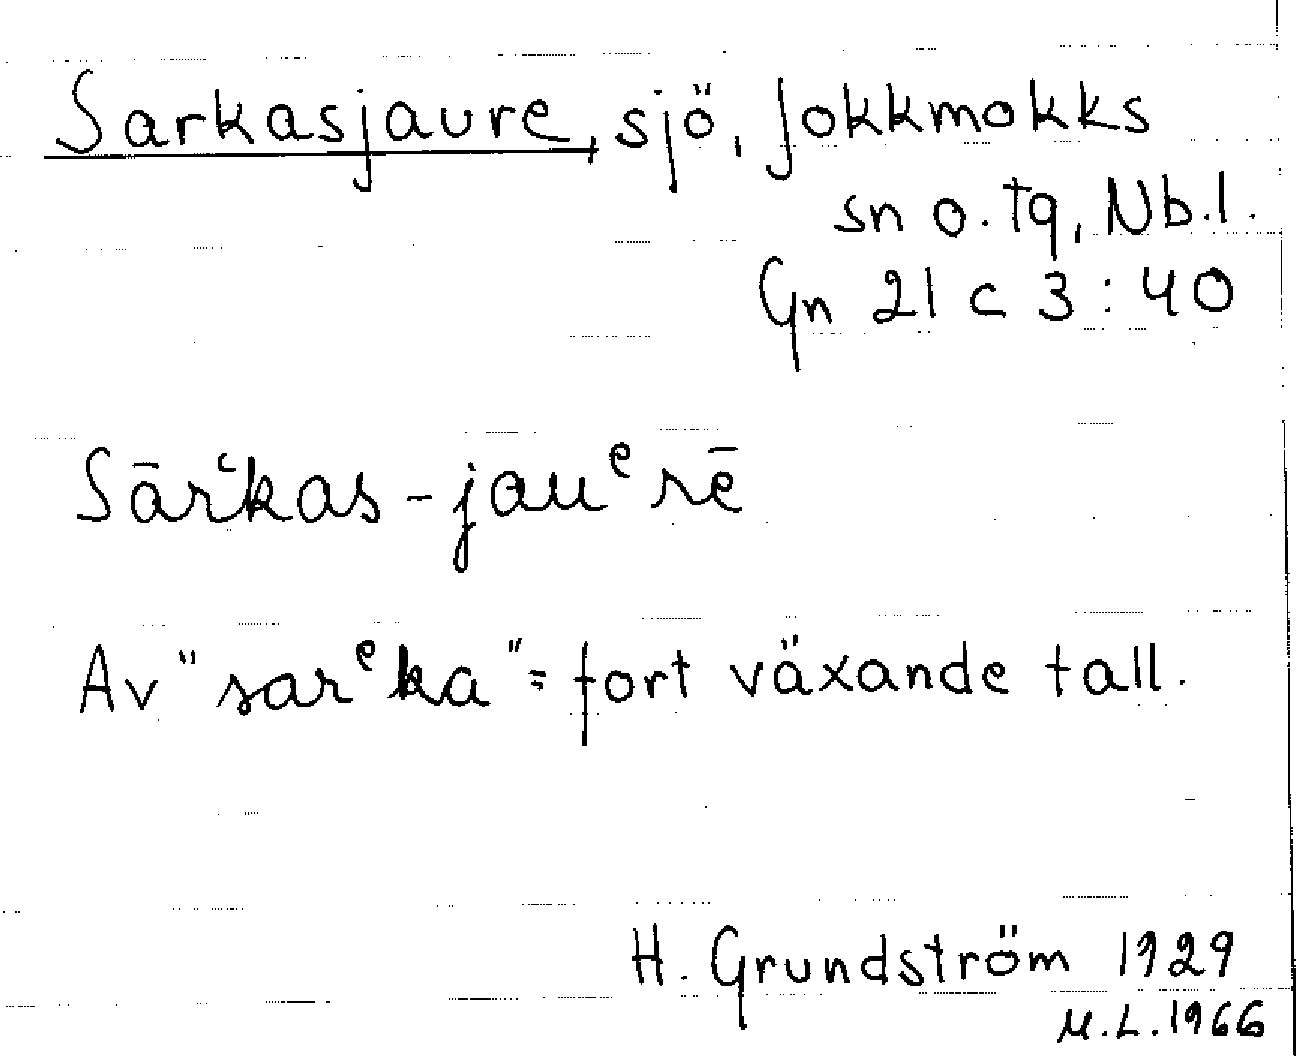 Sarkasjaure, sjö, Jokkmokks
sn o. tg, Nb.l.
Gn 21 c 3:40
Sārʿkas-jauᵉrē
Av "sarᵉka" = fort växande tall.
H. Grundström 1929
M.L. 1966